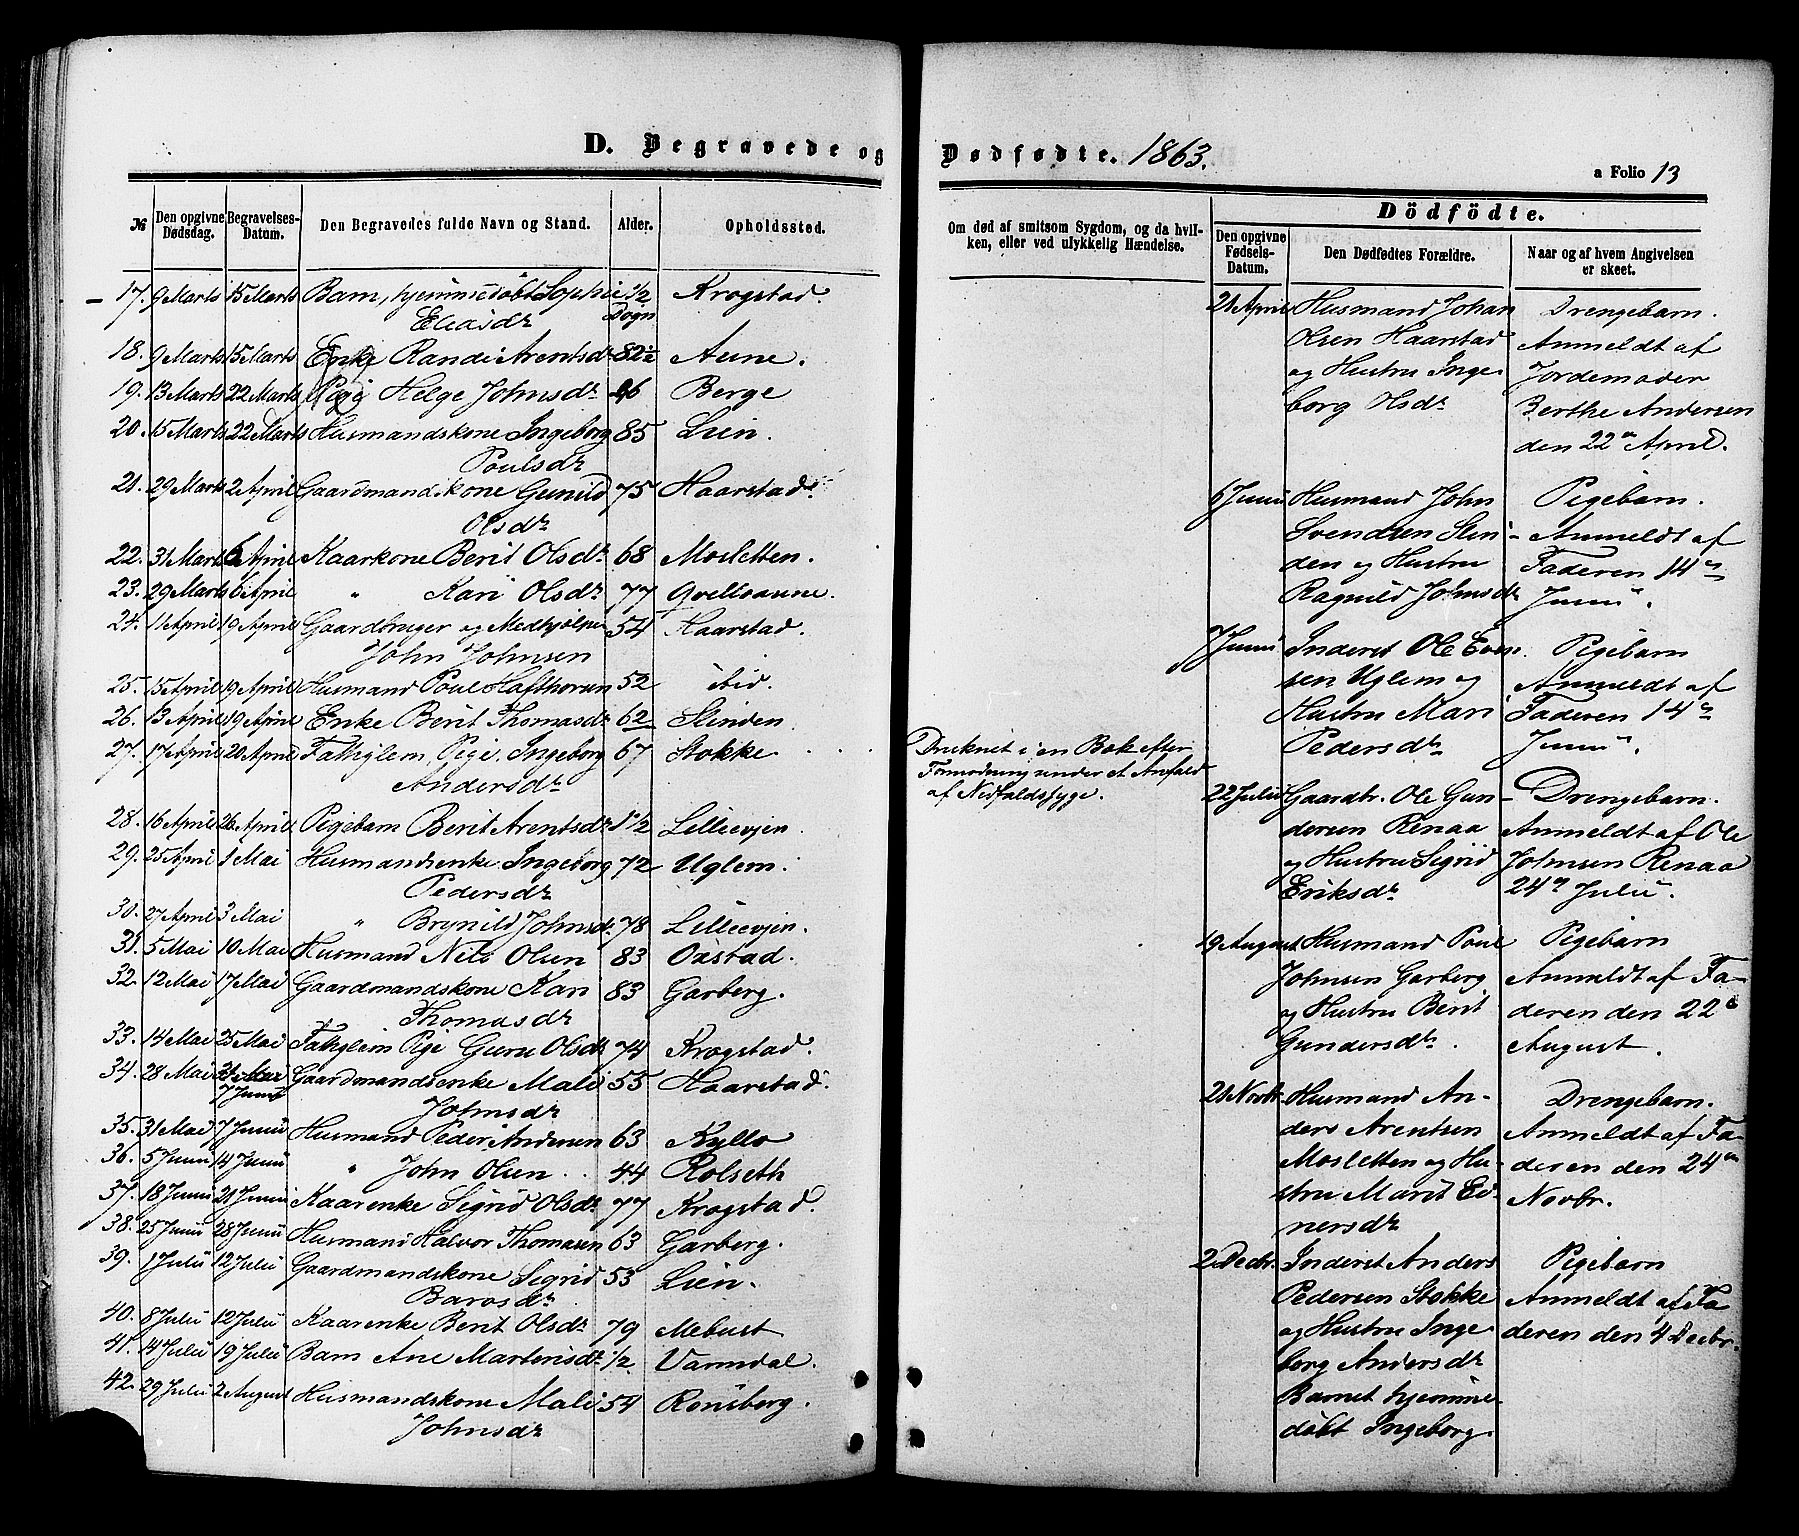 D. Begravede og
№ Den opgivne Dødsdag. Begravelses-Datum. Den Begravedes fulde Navn og Stand. Alder. Opholdssted.
17. 9 Marts 15 Marts Barn, hjemmedøbt Sophie 1/2 Krogstad.
Eliasdr Døgn
18. 9 Marts 15 Marts Enke Randi Arentsdr 82½ Aune.
19. 13 Marts 22 Marts Pige Helge Johnsdr 26 Berge
20. 15 Marts 22 Marts Husmandskone Ingeborg 85 Lien.
Poulsdr
21. 29 Marts 2 April Gaardmandskone Gunild 75 Haarstad.
Olsdr
22. 31 Marts 6 April Kaarkone Berit Olsdr 68 Mosletten.
23. 29 Marts 6 April " Kari Olsdr 77 Qvelloaune.
24. 11 April 19 April Gaardbruger og Medhjelper 54 Haarstad.
John Johnsen
25. 15 April 19 April Husmand Poul Hafthorsen 52 ibid.
26. 13 April 19 April Enke Berit Thomasdr 62 Slinden
27. 17 April 20 April Fattiglem, Pige, Ingeborg 67 Stokke
Andersdr
28. 16 April 26 April Pigebarn Berit Arentsdr 1½ Lillevjen.
29. 25 April 1 Mai Husmandsenke Ingeborg 72 Uglem.
Pedersdr
30. 27 April 3 Mai " Brynild Johnsdr 78 Lilleevjen.
31. 5 Mai 10 Mai Husmand Nils Olsen 83 Oxstad.
32. 12 Mai 17 Mai Gaardmandskone Kari 83 Garberg.
Thomasdr
33. 14 Mai 25 Mai Fattiglem Pige Guru Olsdr 74 Krogstad.
34. 28 Mai 31 Mai Gaardmandsenke Mali 55 Haarstad.
7 Junii Johnsdr
35. 31 Mai 7 Junii Husmand Peder Andersen 63 Kyllo
36. 5 Junii 14 Junii " John Olsen 44 Rolseth
37. 18 Junii 21 Junii Kaarenke Sigrid Olsdr 77 Krogstad.
38. 25 Junii 28 Junii Husmand Halvor Thomasen 63 Garberg.
39. 1 Julii 12 Julii Gaardmandskone Sigrid 53 Lien.
Barosdr
40. 8 Julii 12 Julii Kaarenke Berit Olsdr 79 Mebust
41. 14 Julii 19 Julii Barn Ane Martensdr 1/2 Varmdal.
42. 29 Julii 2 August Husmandskone Mali 54 Rønsberg.
Johnsdr
Dødfødte. 1863.
a Folio 13
Om død af smitsom Sygdom, og da hvil-
ken, eller ved ulykkelig Hændelse.
Dödfödte.
Den opgivne Fødsels-Datum. Den Dødfødtes Forældre. Naar og af hvem Angivelsen er skeet.
Druknet i en Bæk efter
Formodning under et Anfald
af Nedfaldssyge.
21 April Husmand Johan Drengebarn.
Olsen Haarstad Anmeldt af
og Hustru Inge Jordemoder
borg Olsdr Berthe Andersen
den 22de April.
6 Junii Husmand John Pigebarn.
Svendsen Slin- Anmeldt af
den og Hustru Faderen 14de
Ragnild Johnsdr Junii.
7 Junii Inderst Ole Even Pigebarn
sen Uglem og Anmeldt af
Hustru Mari Faderen 14de
Pedersdr Junii.
22 Julii Gaardbr. Ole Gun- Drengebarn.
dersen Renaa Anmeldt af Ole
og Hustru Sigrid Johnsen Renaa
Eriksdr 24de Julii.
19 August Husmand Poul Pigebarn
Johnsen Garberg Anmeldt af Fa-
og Hustru Berit deren den 22de
Gundersdr. August.
21 Novbr. Husmand An- Drengebarn.
ders Arentsen Anmeldt af Fa-
Mosletten og Hu- deren den 24de
stru Marit Ei- Novbr.
nersdr
2 Decbr. Inderst Anders Pigebarn
Pedersen Stokke Anmeldt af Fa
og Hustru Inge deren den 4 Decbr.
borg Andersdr
Barnet hjemme
døbt Ingeborg.